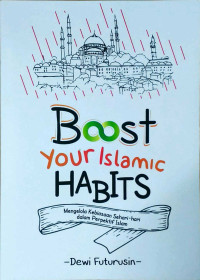 Boost
Your Islamic
HABITS
Mengelola Kebiasaan Sehari-hari
dalam Perpektif Islam
-Dewi Futurusin-